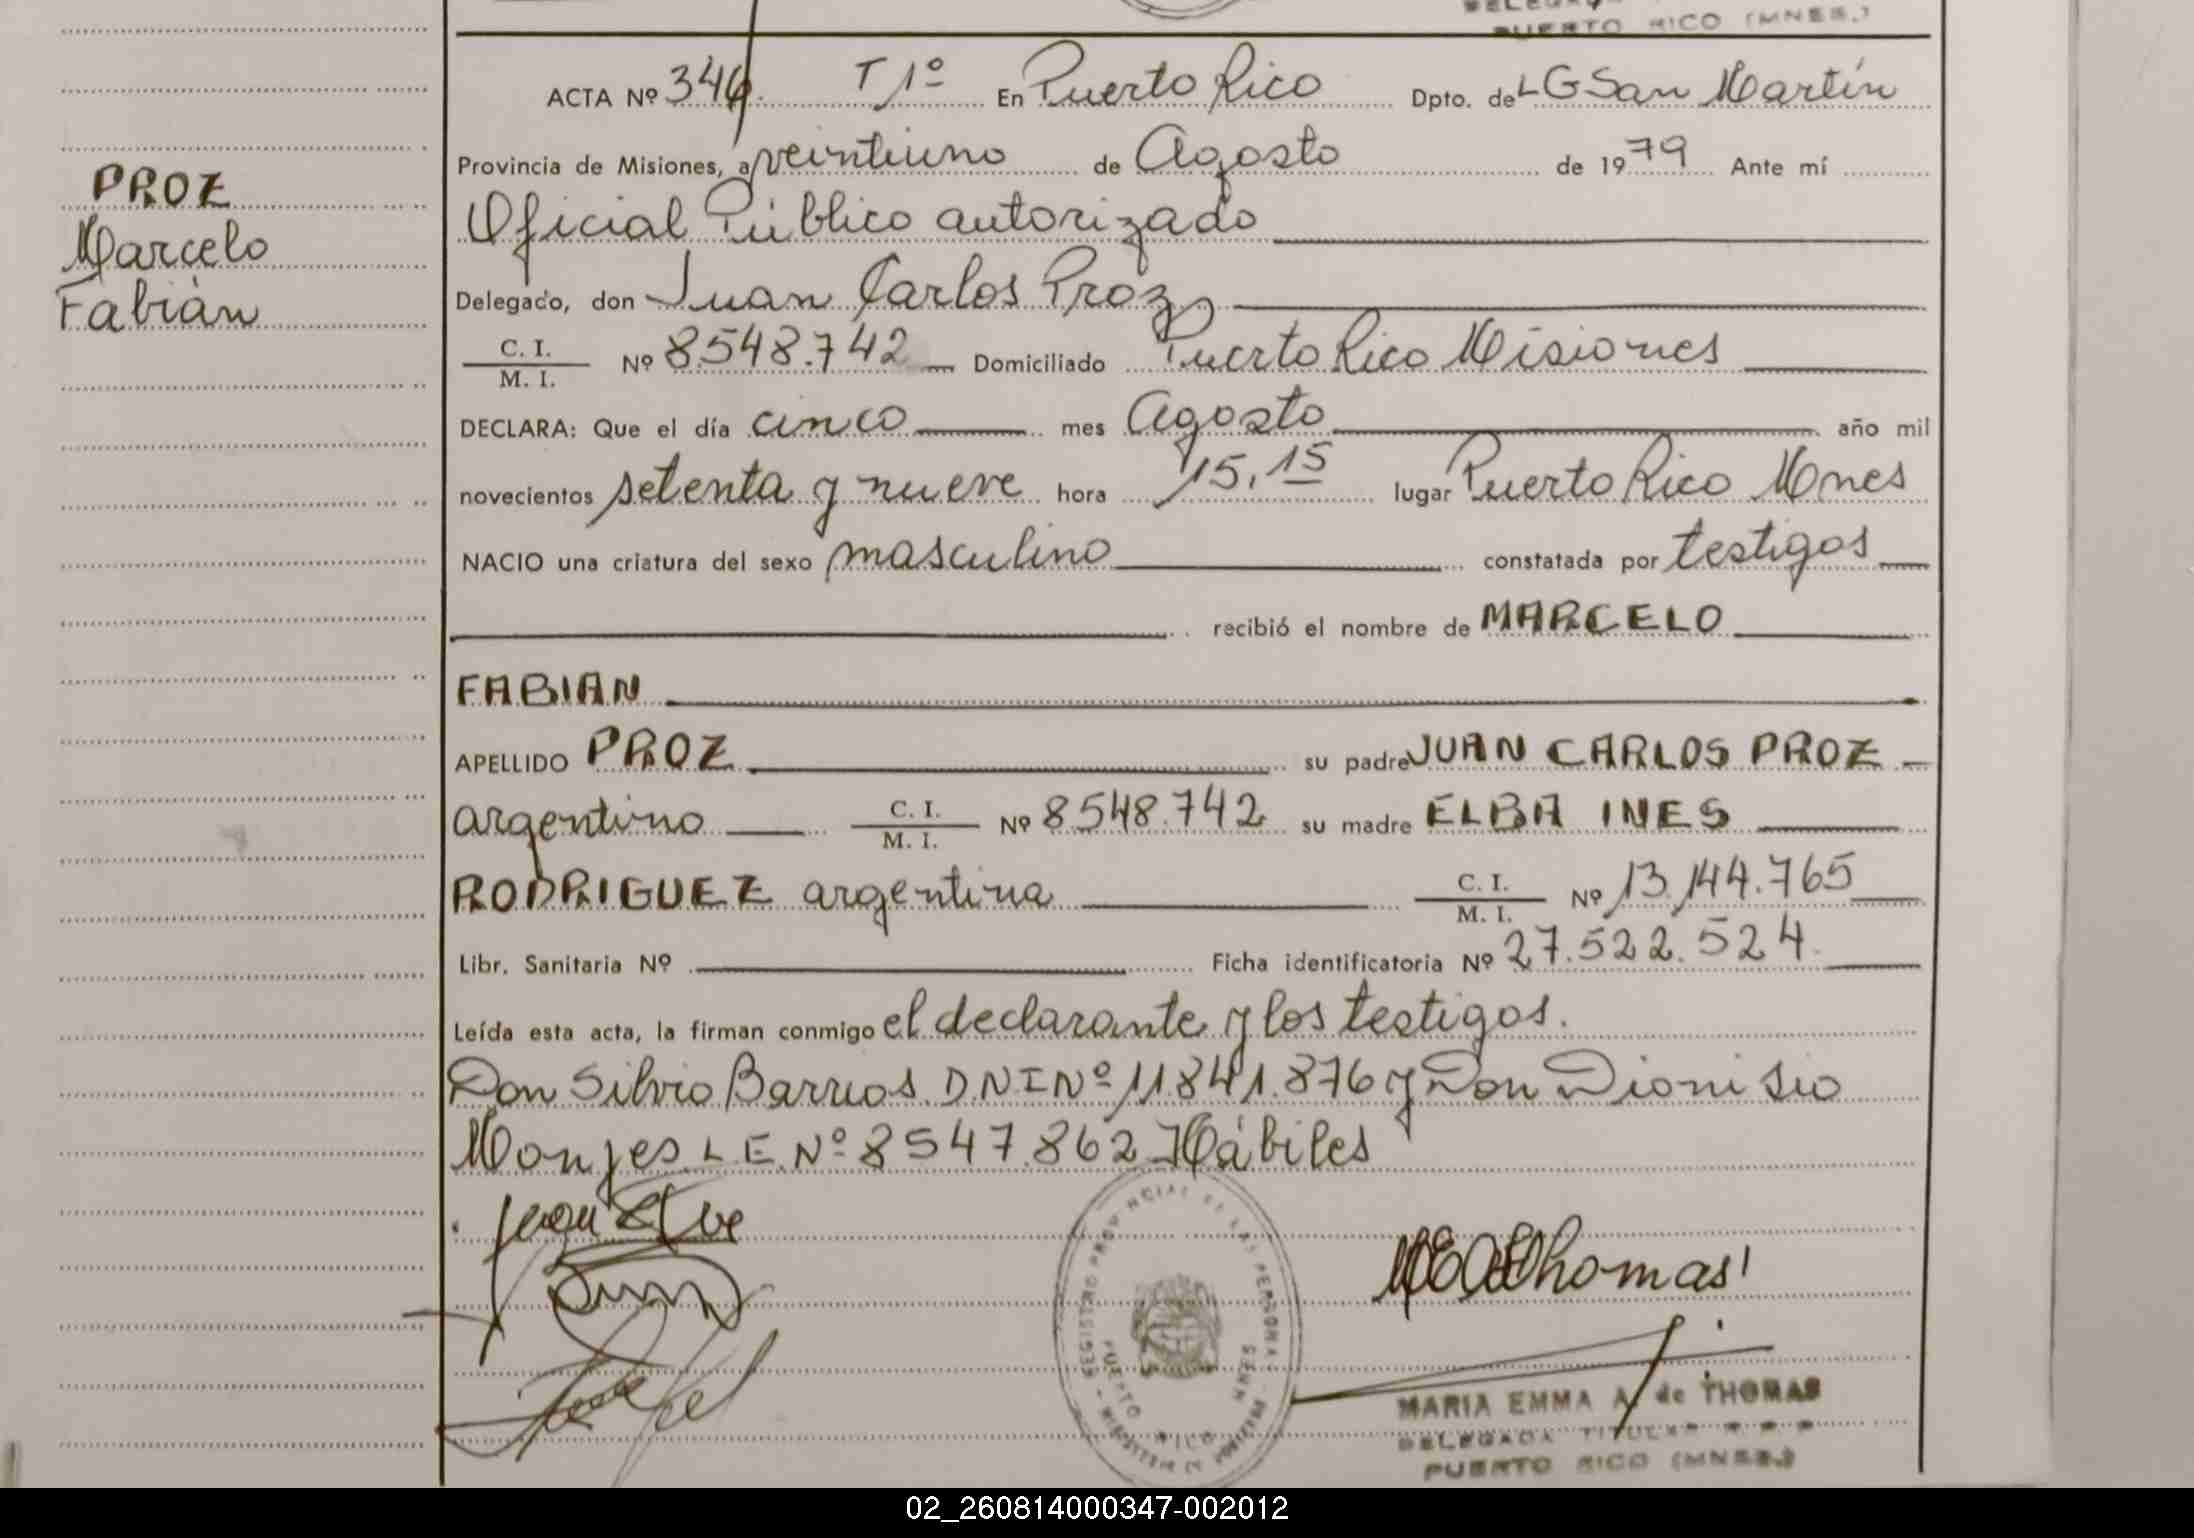 PUERTO RICO (MNES.)
ACTA Nº 346 T 1º En Puerto Rico Dpto. de LG San Martín
Provincia de Misiones, a veintiuno de Agosto de 1979 Ante mí
Oficial Público autorizado
Delegado, don Juan Carlos Proz
C. I.
M. I.
Nº 8.548.742 Domiciliado Puerto Rico Misiones
DECLARA: Que el día cinco mes Agosto año mil
novecientos setenta y nueve hora 15,15 lugar Puerto Rico Mnes
NACIO una criatura del sexo masculino constatada por testigos
recibió el nombre de MARCELO
FABIAN
APELLIDO PROZ su padre JUAN CARLOS PROZ
argentino C. I. M. I. Nº 8.548.742 su madre ELBA INES
RODRIGUEZ argentina C. I. M. I. Nº 13.144.765
Libr. Sanitaria Nº Ficha identificatoria Nº 27.522.524
Leída esta acta, la firman conmigo el declarante y los testigos.
Don Silvio Barrios D.N.I Nº 11.841.876 y Don Dionisio
Monjes L.E. Nº 8547.862 Hábiles
PROZ
Marcelo
Fabián
REGISTRO PROVINCIAL DE LAS PERSONAS
PUERTO RICO MNES
MARIA EMMA A. de THOMAS
DELEGADA TITULAR
PUERTO RICO (MNES.)
02_260814000347-002012